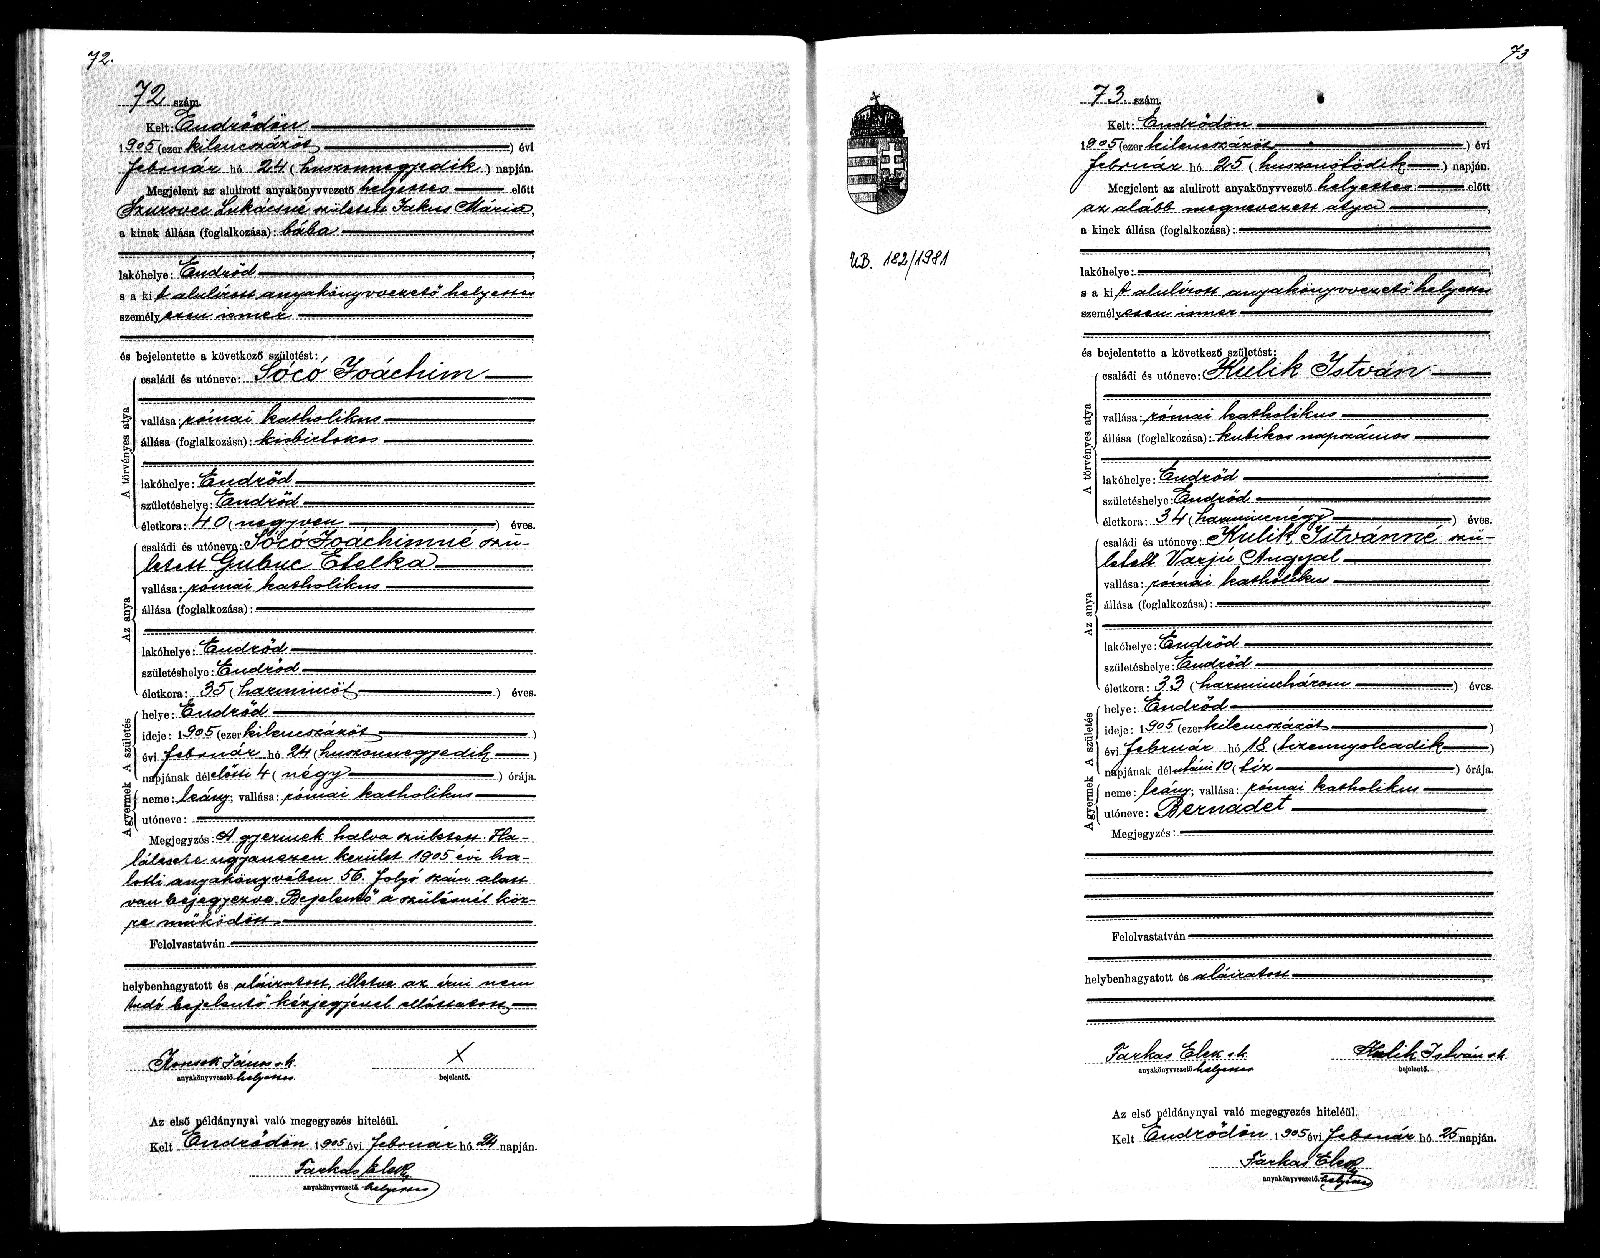 72.
72 szám.
Kelt: Endrődön
1905 (ezer kilencszázöt) évi
február hó 24 (huszonnegyedik) napján.
Megjelent az alulirott anyakönyvvezető helyettes előtt
Szurovecz Lukácsné született Jakus Mária,
a kinek állása (foglalkozása): bába
lakóhelye: Endrőd
s a kit alulírott anyakönyvvezető helyettes
személyesen ismer
és bejelentette a következő születést:
A törvényes atya
családi és utóneve: Sócó Joáchim
vallása: római katholikus
állása (foglalkozása): kisbirtokos
lakóhelye: Endrőd
születéshelye: Endrőd
életkora: 40 (negyven) éves.
Az anya
családi és utóneve: Sócó Joáchimné szü-
letett Gubuc Etelka
vallása: római katholikus
állása (foglalkozása):
lakóhelye: Endrőd
születéshelye: Endrőd
életkora: 35 (harmincöt) éves.
A születés
helye: Endrőd
ideje: 1905 (ezer kilencszázöt)
évi február hó 24 (huszonnegyedik)
napjának délelőtti 4 (négy) órája.
A gyermek
neme: leány; vallása: római katholikus
utóneve:
Megjegyzés: A gyermek halva született. Ha-
lálesete ugyanezen kerület 1905 évi ha-
lotti anyakönyvében 56. folyó szám alatt
van bejegyezve. Bejelentő a szülésnél köz-
re működött.
Felolvastatván
helybenhagyatott és aláiratott, illetve az írni nem
tudó bejelentő kézjegyével elláttatott
János s.k.
anyakönyvvezető helyettes
X
bejelentő.
Az első példánynyal való megegyezés hiteléül.
Kelt Endrődön 1905 évi február hó 24 napján.
Farkas Elek
anyakönyvvezető helyettes
73
73 szám.
Kelt: Endrődön
1905 (ezer kilencszázöt) évi
február hó 25 (huszonötödik) napján.
Megjelent az alulirott anyakönyvvezető helyettes előtt
az alább megnevezett atya,
a kinek állása (foglalkozása):
lakóhelye:
s a kit alulírott anyakönyvvezető helyettes
személyesen ismer
UB. 182/1981
és bejelentette a következő születést:
A törvényes atya
családi és utóneve: Kulik István
vallása: római katholikus
állása (foglalkozása): kubikos napszámos
lakóhelye: Endrőd
születéshelye: Endrőd
életkora: 34 (harmincnégy) éves.
Az anya
családi és utóneve: Kulik Istvánné szü-
letett Varjú Angyal
vallása: római katholikus
állása (foglalkozása):
lakóhelye: Endrőd
születéshelye: Endrőd
életkora: 33 (harminchárom) éves.
A születés
helye: Endrőd
ideje: 1905 (ezer kilencszázöt)
évi február hó 18 (tizennyolcadik)
napjának délutáni 10 (tíz) órája.
A gyermek
neme: leány; vallása: római katholikus
utóneve: Bernadet
Megjegyzés:
Felolvastatván
helybenhagyatott és aláiratott
Farkas Elek s.k.
anyakönyvvezető helyettes
Kulik István s.k.
bejelentő.
Az első példánynyal való megegyezés hiteléül.
Kelt Endrődön 1905 évi február hó 25 napján.
Farkas Elek
anyakönyvvezető helyettes